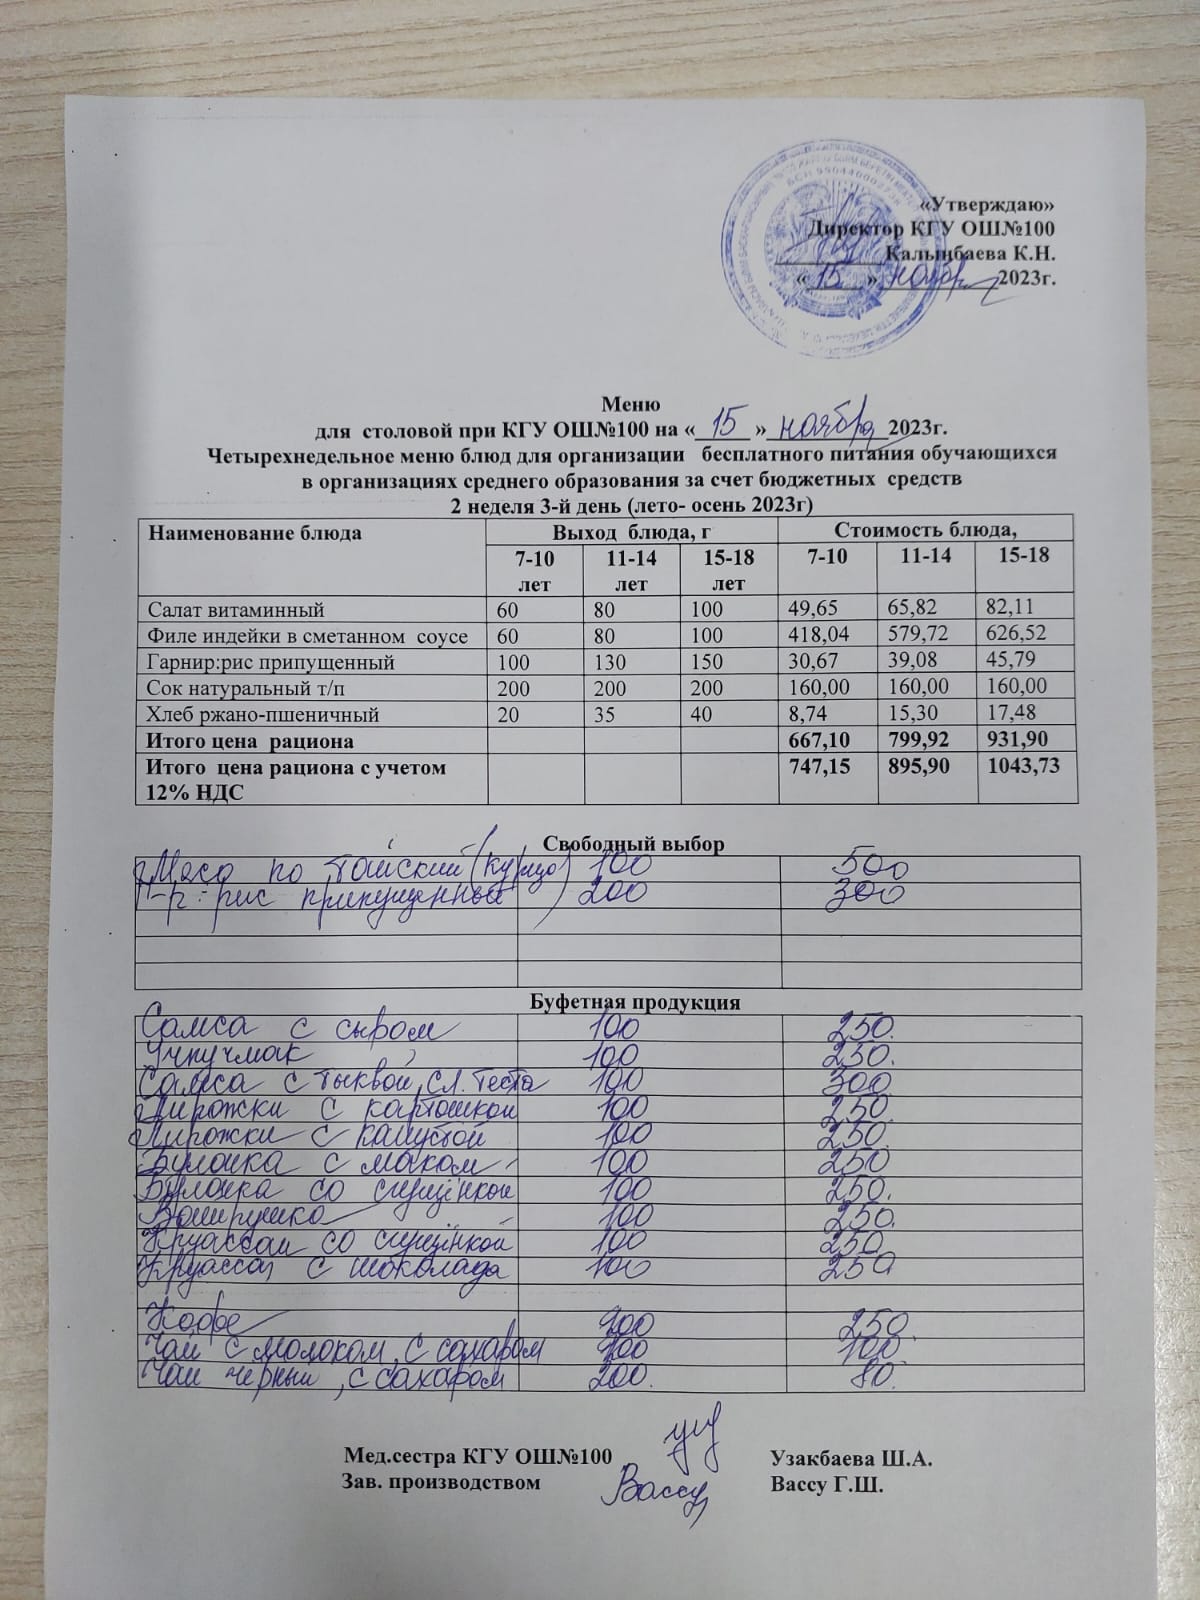 «Утверждаю»
Директор КГУ ОШ№100
Калынбаева К.Н.
«15» ноября 2023г.
Меню
для столовой при КГУ ОШ№100 на «15» ноября 2023г.
Четырехнедельное меню блюд для организации бесплатного питания обучающихся
в организациях среднего образования за счет бюджетных средств
2 неделя 3-й день (лето- осень 2023г)
Наименование блюда Выход блюда, г Стоимость блюда,
7-10 лет 11-14 лет 15-18 лет 7-10 11-14 15-18
Салат витаминный 60 80 100 49,65 65,82 82,11
Филе индейки в сметанном соусе 60 80 100 418,04 579,72 626,52
Гарнир:рис припущенный 100 130 150 30,67 39,08 45,79
Сок натуральный т/п 200 200 200 160,00 160,00 160,00
Хлеб ржано-пшеничный 20 35 40 8,74 15,30 17,48
Итого цена рациона 667,10 799,92 931,90
Итого цена рациона с учетом 747,15 895,90 1043,73
12% НДС
Свободный выбор
Мясо по тайский 100 500
Г-р: рис припущенный 200 300
Буфетная продукция
Самса с сыром 100 250.
Учпучмак 100 250.
Самса с тыквой, сл. теста 100 300
Пирожки с картошкой 100 250
Пирожки с капустой 100 250.
Булочка с маком 100 250
Булочка со сгущёнкой 100 250.
Ватрушка 100 250.
Круассан со сгущёнкой 100 250
Круассан с шоколада 100 250
Кофе 200 250.
Чай с молоком, с сахаром 200 100.
Чай черный, с сахаром 200. 80.
Мед.сестра КГУ ОШ№100 Узакбаева Ш.А.
Зав. производством Вассу Вассу Г.Ш.